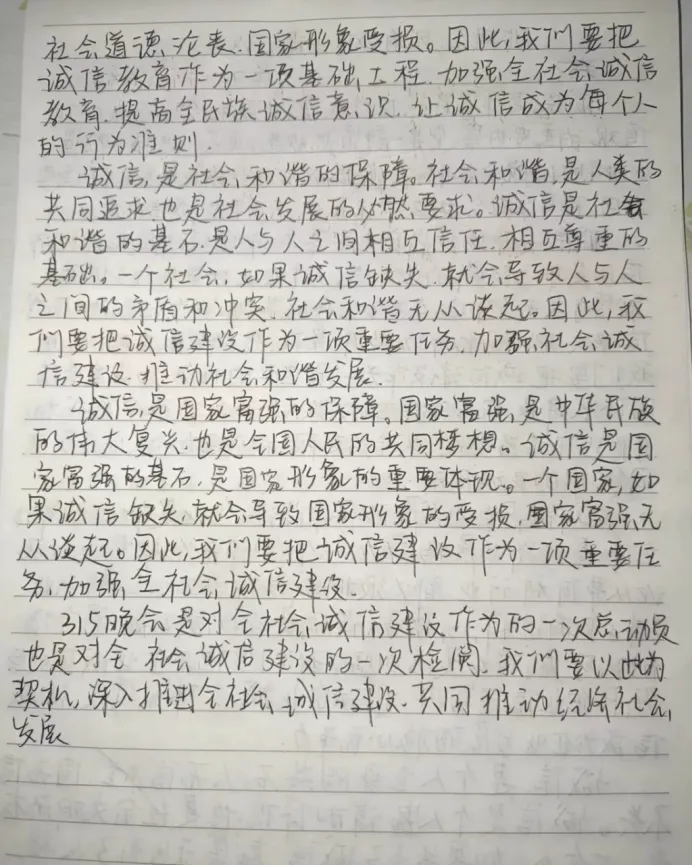 社会道德沦丧.国家形象受损。因此,我们要把
诚信教育作为一项基础工程.加强全社会诚信
教育.提高全民族诚信意识.让诚信成为每个人
的行为准则.
诚信,是社会和谐的保障。社会和谐,是人类的
共同追求也是社会发展的必然要求。诚信是社会
和谐的基石.是人与人之间相互信任.相互尊重的
基础。一个社会,如果诚信缺失.就会导致人与人
之间的矛盾和冲突.社会和谐无从谈起。因此,我
们要把诚信建设作为一项重要任务.加强社会诚
信建设.推动社会和谐发展.
诚信,是国家富强的保障。国家富强,是中华民族
的伟大复兴.也是全国人民的共同梦想。诚信是国
家富强的基石,是国家形象的重要体现。一个国家,如
果诚信缺失.就会导致国家形象的受损.国家富强无
从谈起。因此,我们要把诚信建设作为一项重要任
务,加强全社会诚信建设.
315晚会是对全社会诚信建设作为的一次总动员
也是对全社会诚信建设的一次检阅.我们要以此为
契机,深入推进全社会诚信建设.共同推动经济社会
发展